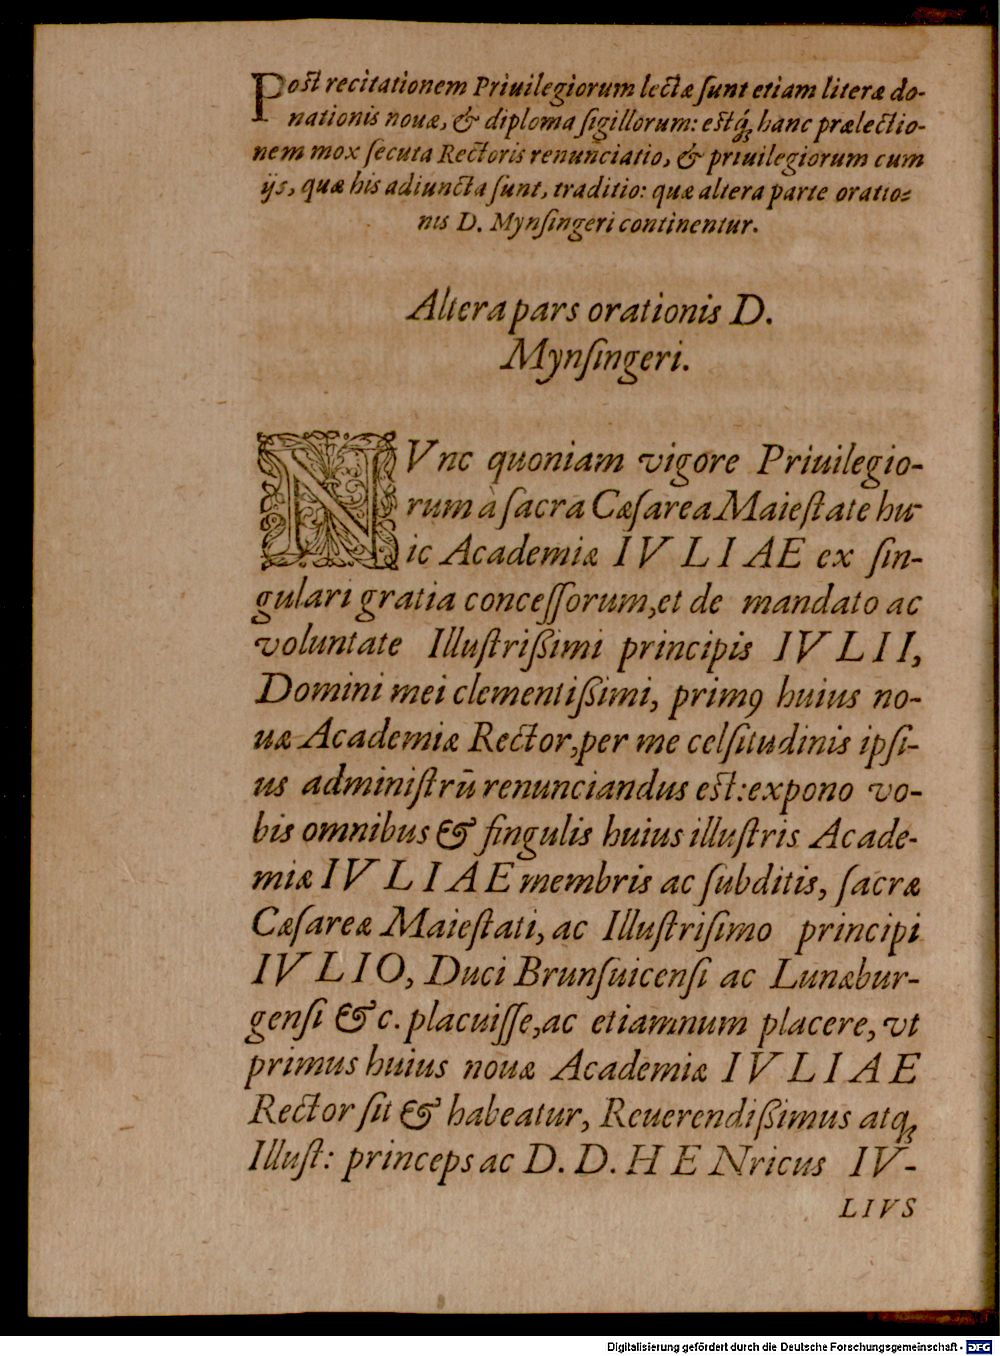 Post recitationem Priuilegiorum lectæ ſunt etiam literæ do-
nationis nouæ, & diploma ſigillorum: estq́ꝫ hanc prælectio-
nem mox ſecuta Rectoris renunciatio, & priuilegiorum cum
ijs, quæ his adiuncta ſunt, traditio: quæ altera parte oratio=
nis D. Mynſingeri continentur.
Altera pars orationis D.
Mynſingeri.
NVnc quoniam vigore Priuilegio-
rum à ſacra Cæſarea Maieſtate hu-
ic Academiæ IVLIAE ex ſin-
gulari gratia conceſſorum, et de mandato ac
voluntate Illuſtrißimi principis IVLII,
Domini mei clementißimi, primꝰ huius no-
uæ Academiæ Rector, per me celſitudinis ipſi-
us adminiſtrū renunciandus est: expono vo-
bis omnibus & ſingulis huius illuſtris Acade-
miæ IVLIAE membris ac ſubditis, ſacræ
Cæſareæ Maieſtati, ac Illuſtriſimo principi
IVLIO, Duci Brunſuicenſi ac Lunæbur-
genſi &c. placuiſſe, ac etiamnum placere, vt
primus huius nouæ Academiæ IVLIAE
Rector ſit & habeatur, Reuerendißimus atqꝫ
Illuſt: princeps ac D. D. HENricus IV-
LIVS
Digitalisierung gefördert durch die Deutsche Forschungsgemeinschaft - DFG